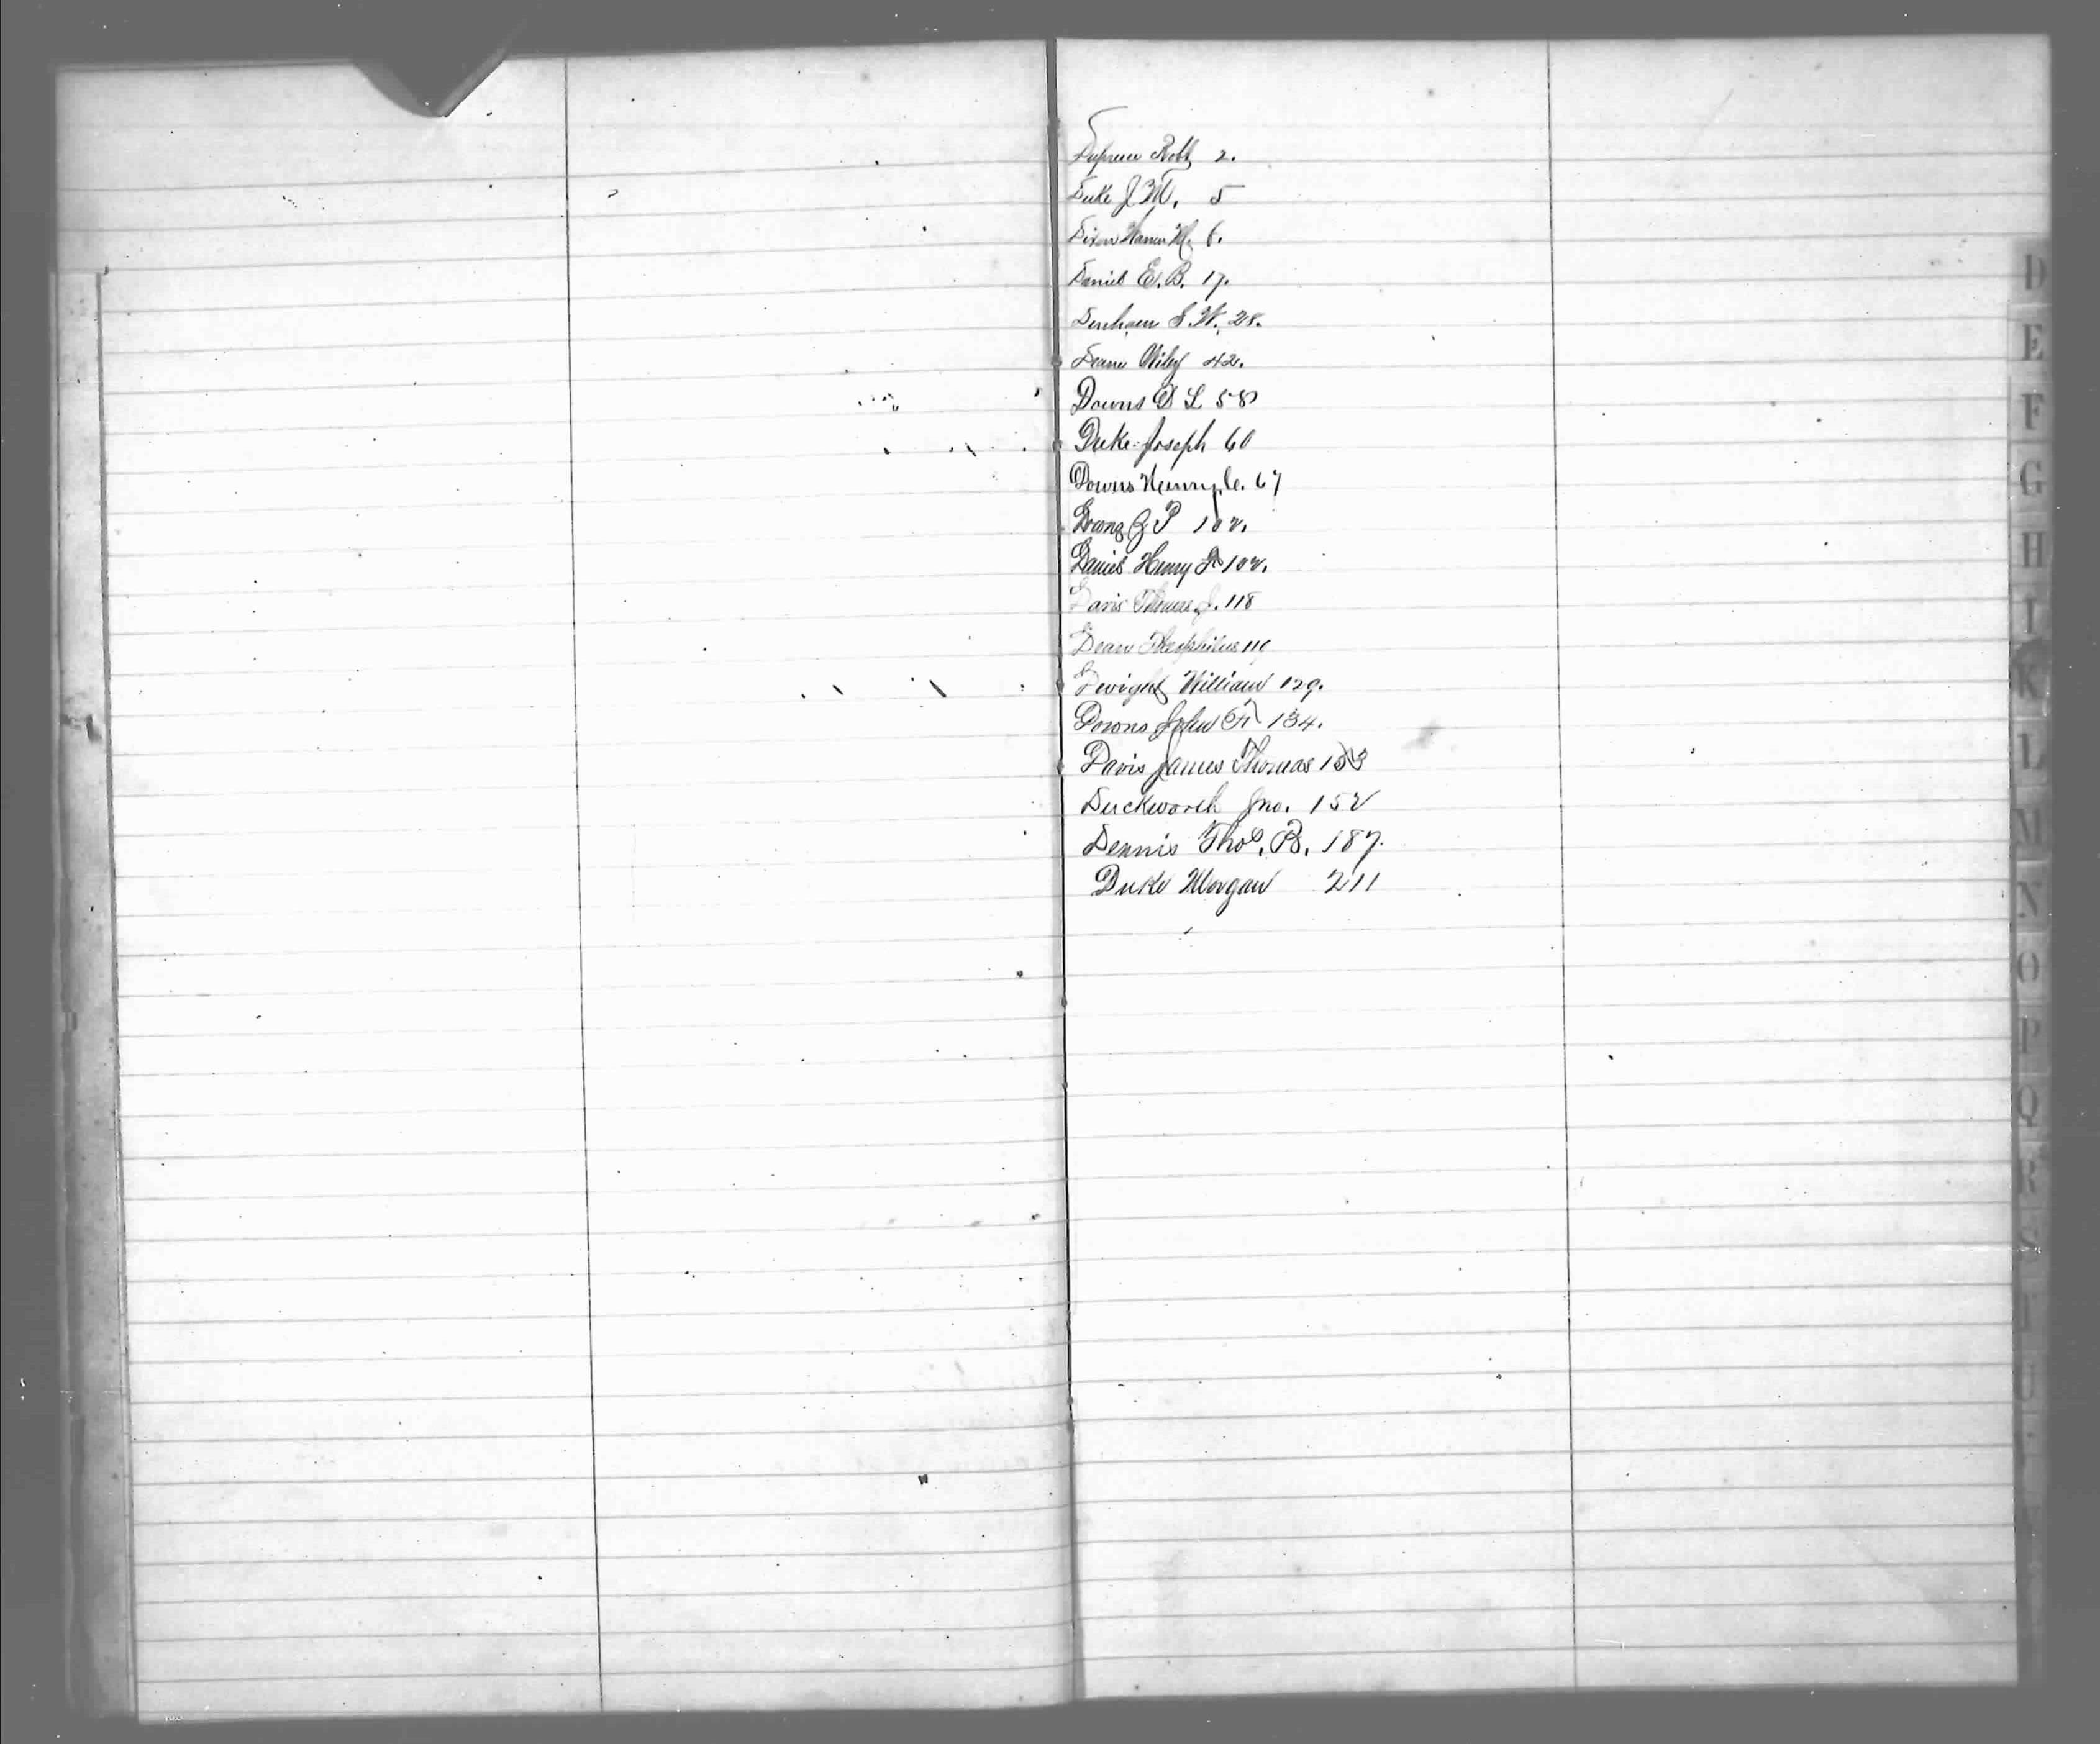 Robt 2.
Duke J. M. 5
Dixon H. 6.
Daniel E. B. 17.
Denham S. W. 28.
Deane Wiley 42.
Downs D L 58
Duke Joseph 60
Downs Henry C. 67
P 102.
Daniel Henry 102.
Davis Thomas J. 118
Dean Theophilus 119
Dwight William 129.
Downs John F. 134.
Davis James Thomas 153
Duckworth Jno. 152
Dennis Thos. B. 187.
Duke Morgan 211
D
E
F
G
H
I
K
L
M
N
O
P
Q
R
S
T
U